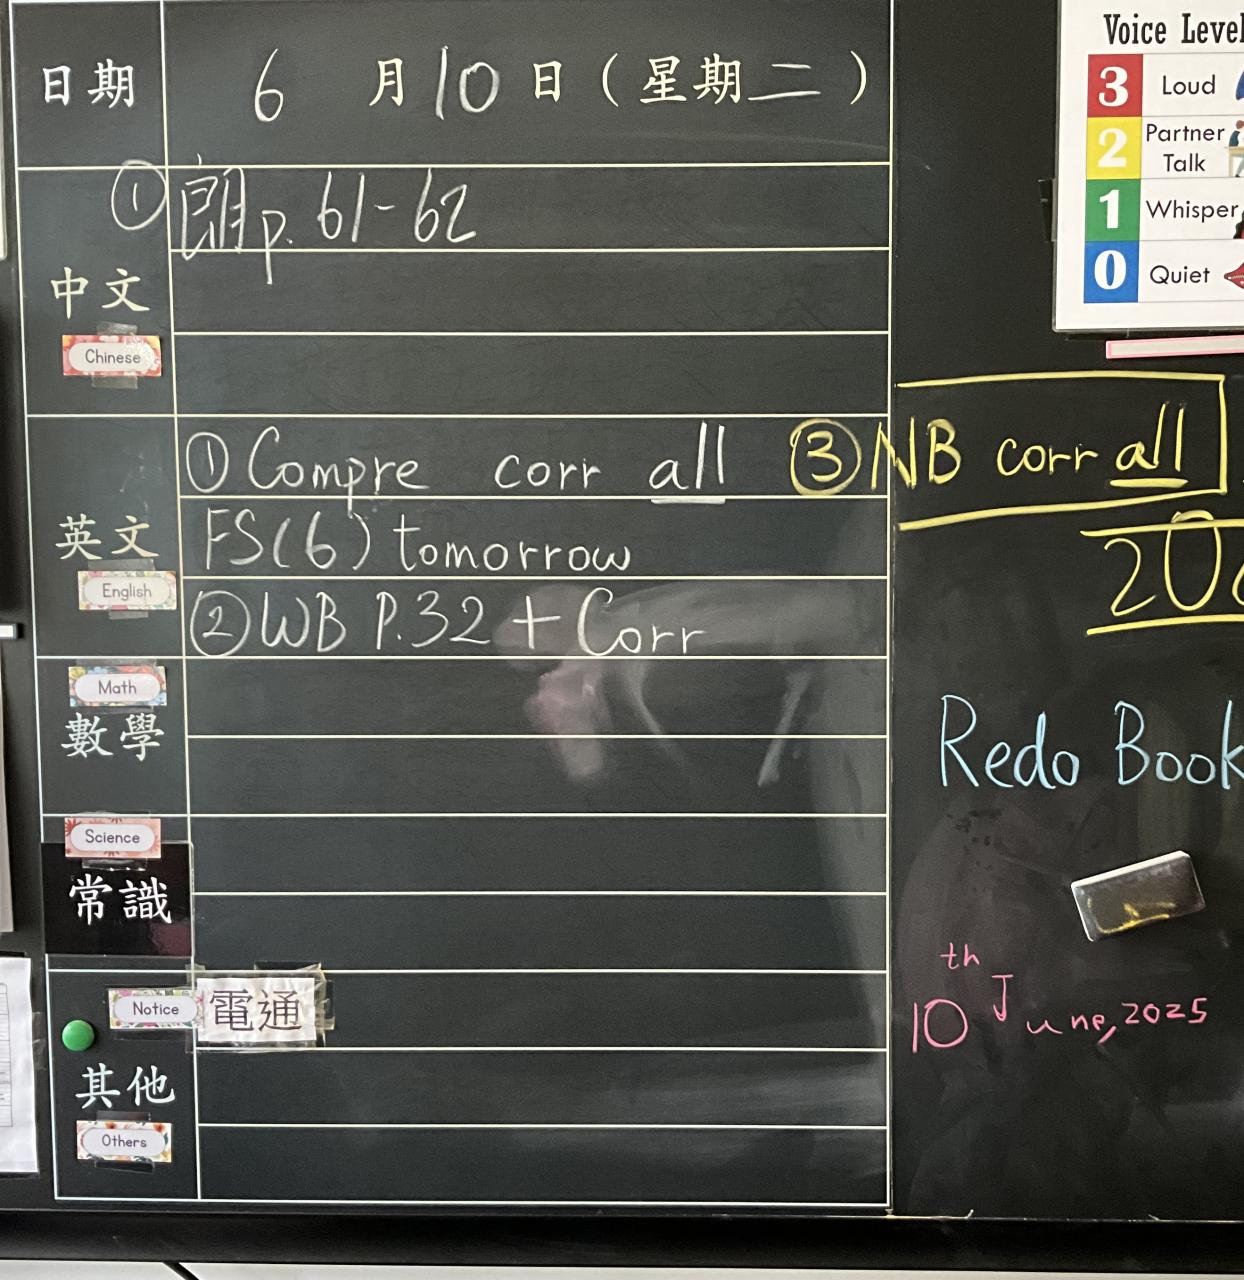 日期 6月10日（星期二）
① 朗p. 61-62
中文
Chinese
① Compre corr all ③ NB corr all
英文 FS(6) tomorrow
English
② WB P.32 + Corr
Math
數學
Science
常識
Notice 電通
其他
Others
Voice Level
3 Loud
2 Partner Talk
1 Whisper
0 Quiet
Redo Book
10th June, 2025